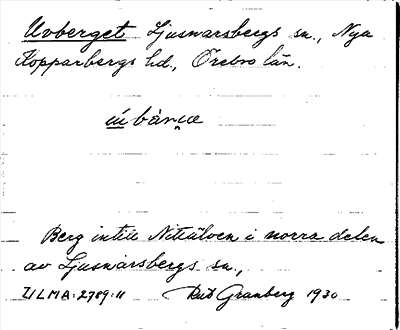 Uvberget Ljusnarsbergs sn., Nya
Kopparbergs hd., Örebro län.
Berg intill Nittälven i norra delen
av Ljusnarsbergs sn.,
ULMA:2789:11 Rut Granberg 1930